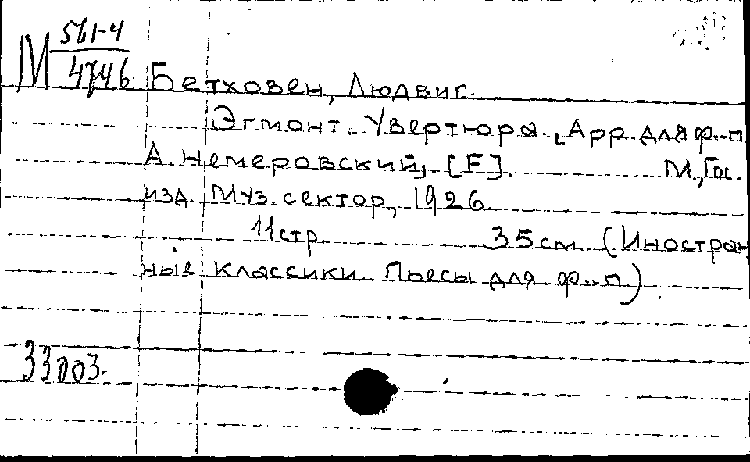 М 561-4
4746
Бетховен, Людвиг.
Эгмонт. Увертюра. Арр. для ф.-п.
А. Немеровский, [F]. М., Гос.
изд. Муз. сектор, 1926.
11 стр 35 см. (Иностран
ные классики. Пьесы для ф.-п.)
33003.